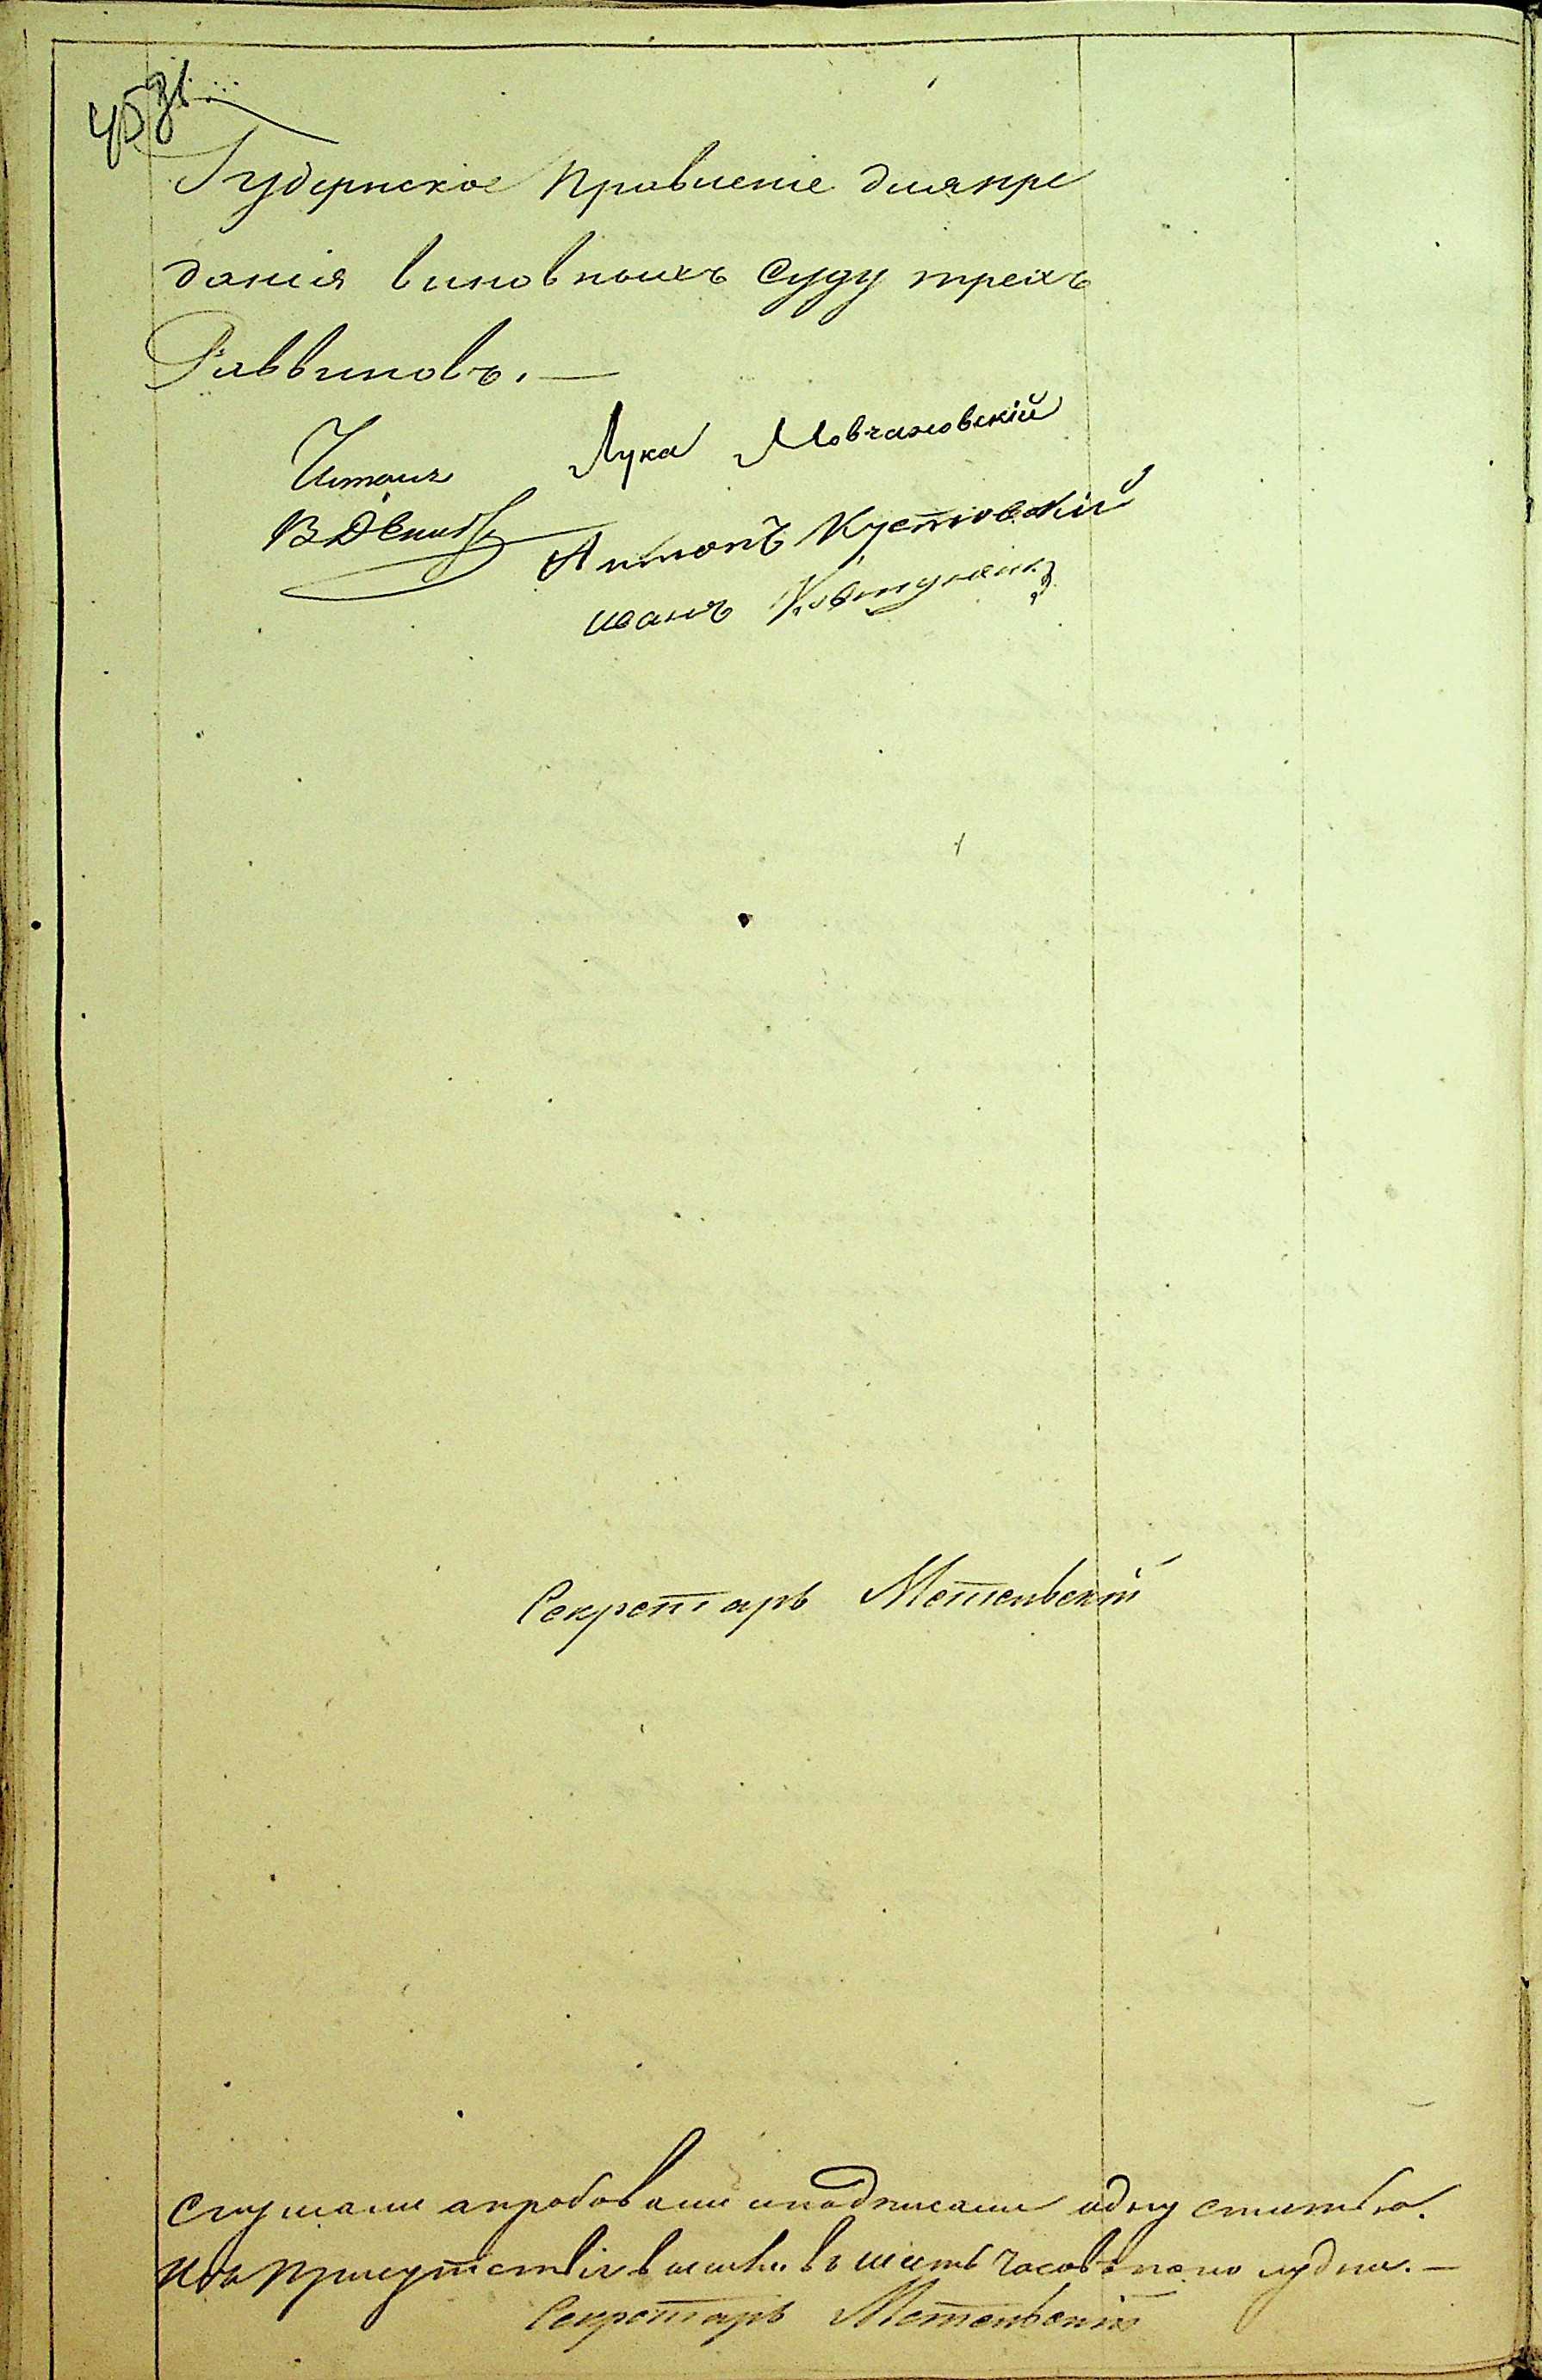 45 зв
Губернское Правленіе для пре
данія виновныхъ Суду трехъ
Раввиновъ.—
Читалъ Лука Мовчановскій
Антонъ Кустовскій
иванъ
Секретарь Метельскій
Слушали апробовали и подписали одну статью.
Изъ Присутствія вышли въ шесть часовъ по полудни.—
Секретарь Метельскій